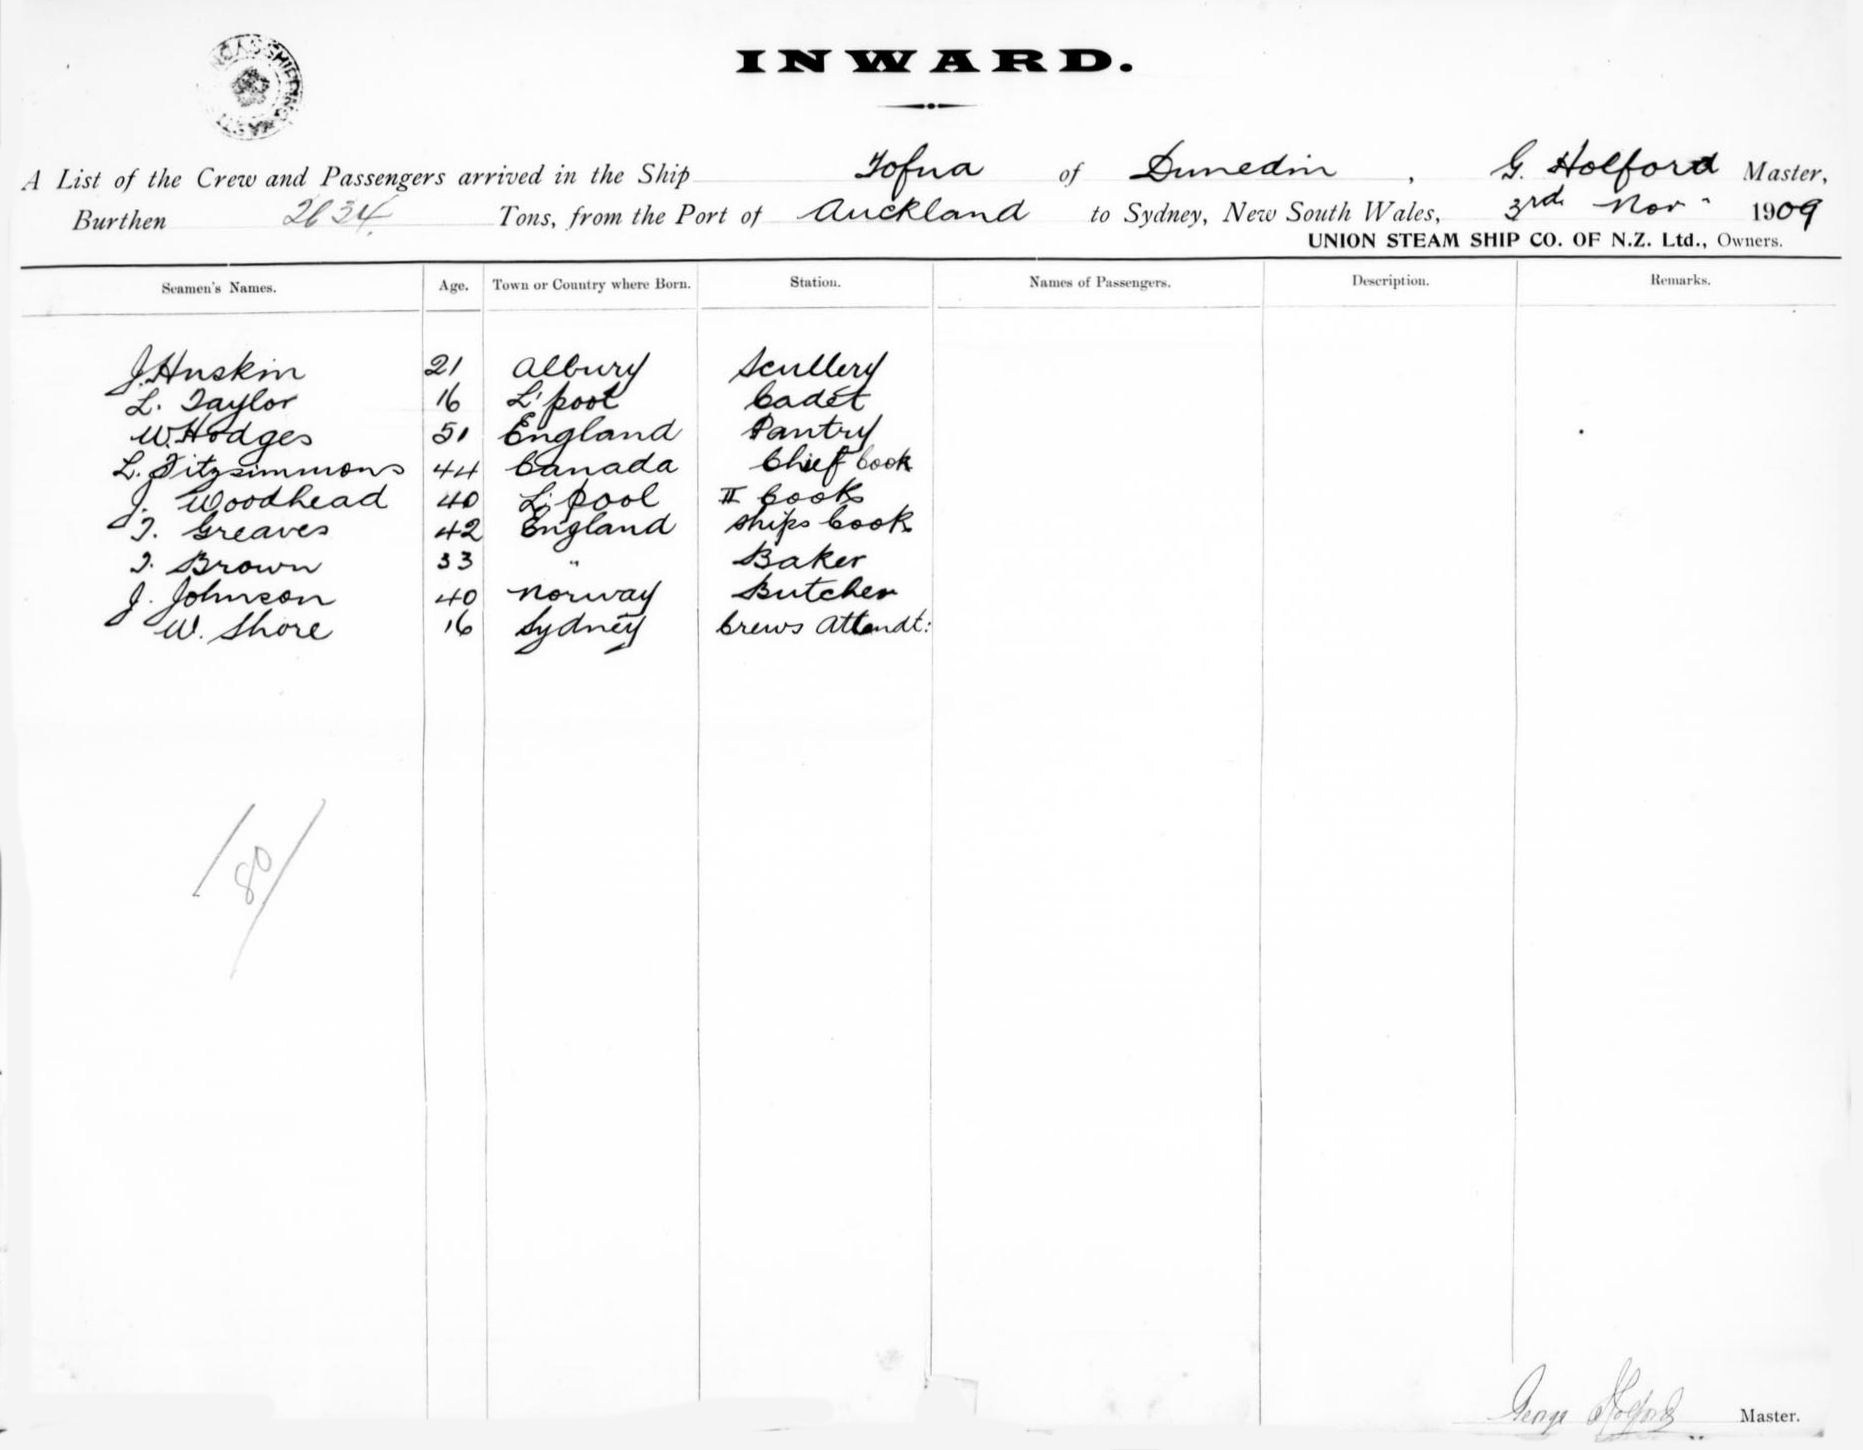 INWARD.
A List of the Crew and Passengers arrived in the Ship Tofua of Dunedin, G. Holford Master,
Burthen 2634 Tons, from the Port of Auckland to Sydney, New South Wales, 3rd Nov 1909
UNION STEAM SHIP CO. OF N.Z. Ltd., Owners.
Seamen's Names. Age. Town or Country where Born. Station. Names of Passengers. Description. Remarks.
J. Huskin 21 Albury Scullery
L. Taylor 16 L'pool Cadet
W. Hodges 51 England Pantry
L. Fitzsimmons 44 Canada Chief Cook
J. Woodhead 40 L'pool II Cook
T. Greaves 42 England Ships Cook
T. Brown 33 " Baker
J. Johnson 40 Norway Butcher
W. Shore 16 Sydney Crews Attendt:
80
George Holford Master.